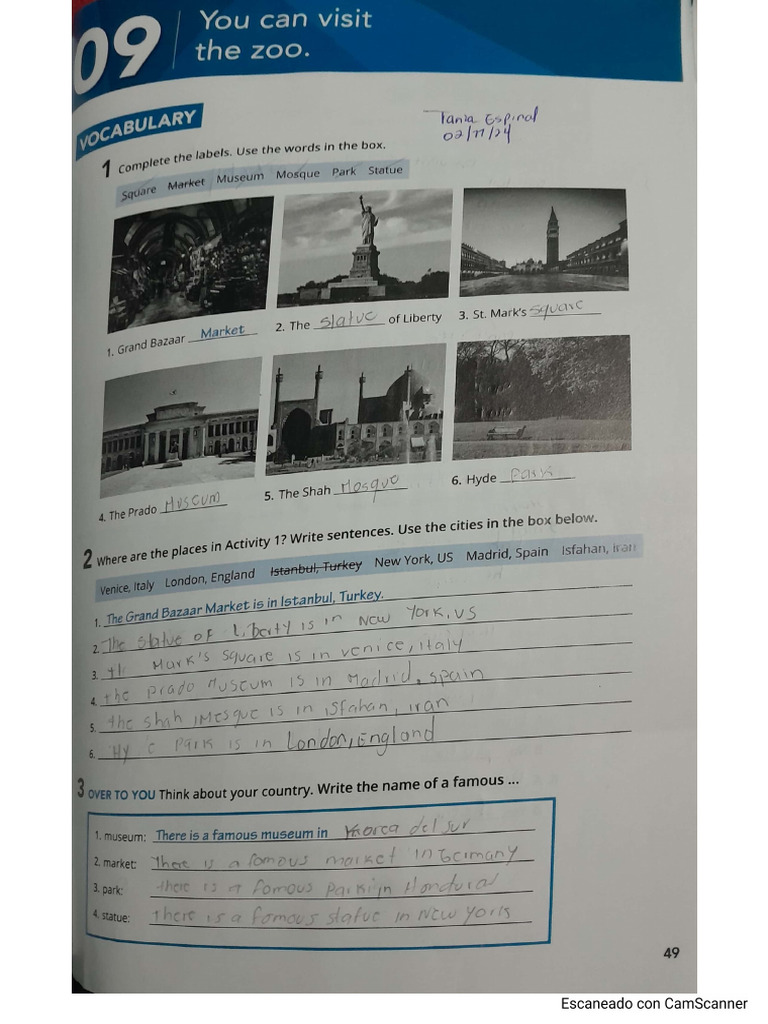 09
You can visit
the zoo.
VOCABULARY
Tania Espinal
02/11/24
1 Complete the labels. Use the words in the box.
Square Market Museum Mosque Park Statue
1. Grand Bazaar Market
2. The statue of Liberty
3. St. Mark's square
4. The Prado Museum
5. The Shah Mosque
6. Hyde Park
2 Where are the places in Activity 1? Write sentences. Use the cities in the box below.
Venice, Italy London, England Istanbul, Turkey New York, US Madrid, Spain Isfahan, Iran
1. The Grand Bazaar Market is in Istanbul, Turkey.
2. The statue of Liberty is in New York, US
3. Mark's square is in venice, italy
4. the prado Museum is in Madrid, spain
5. the shah Mesque is in isfahan, iran
6. Park is in London, England
3 OVER TO YOU Think about your country. Write the name of a famous ...
1. museum: There is a famous museum in Korea del sur
2. market: There is a famous market in Germany
3. park: there is a famous park in Honduras
4. statue: there is a famous statue in New York
49
Escaneado con CamScanner